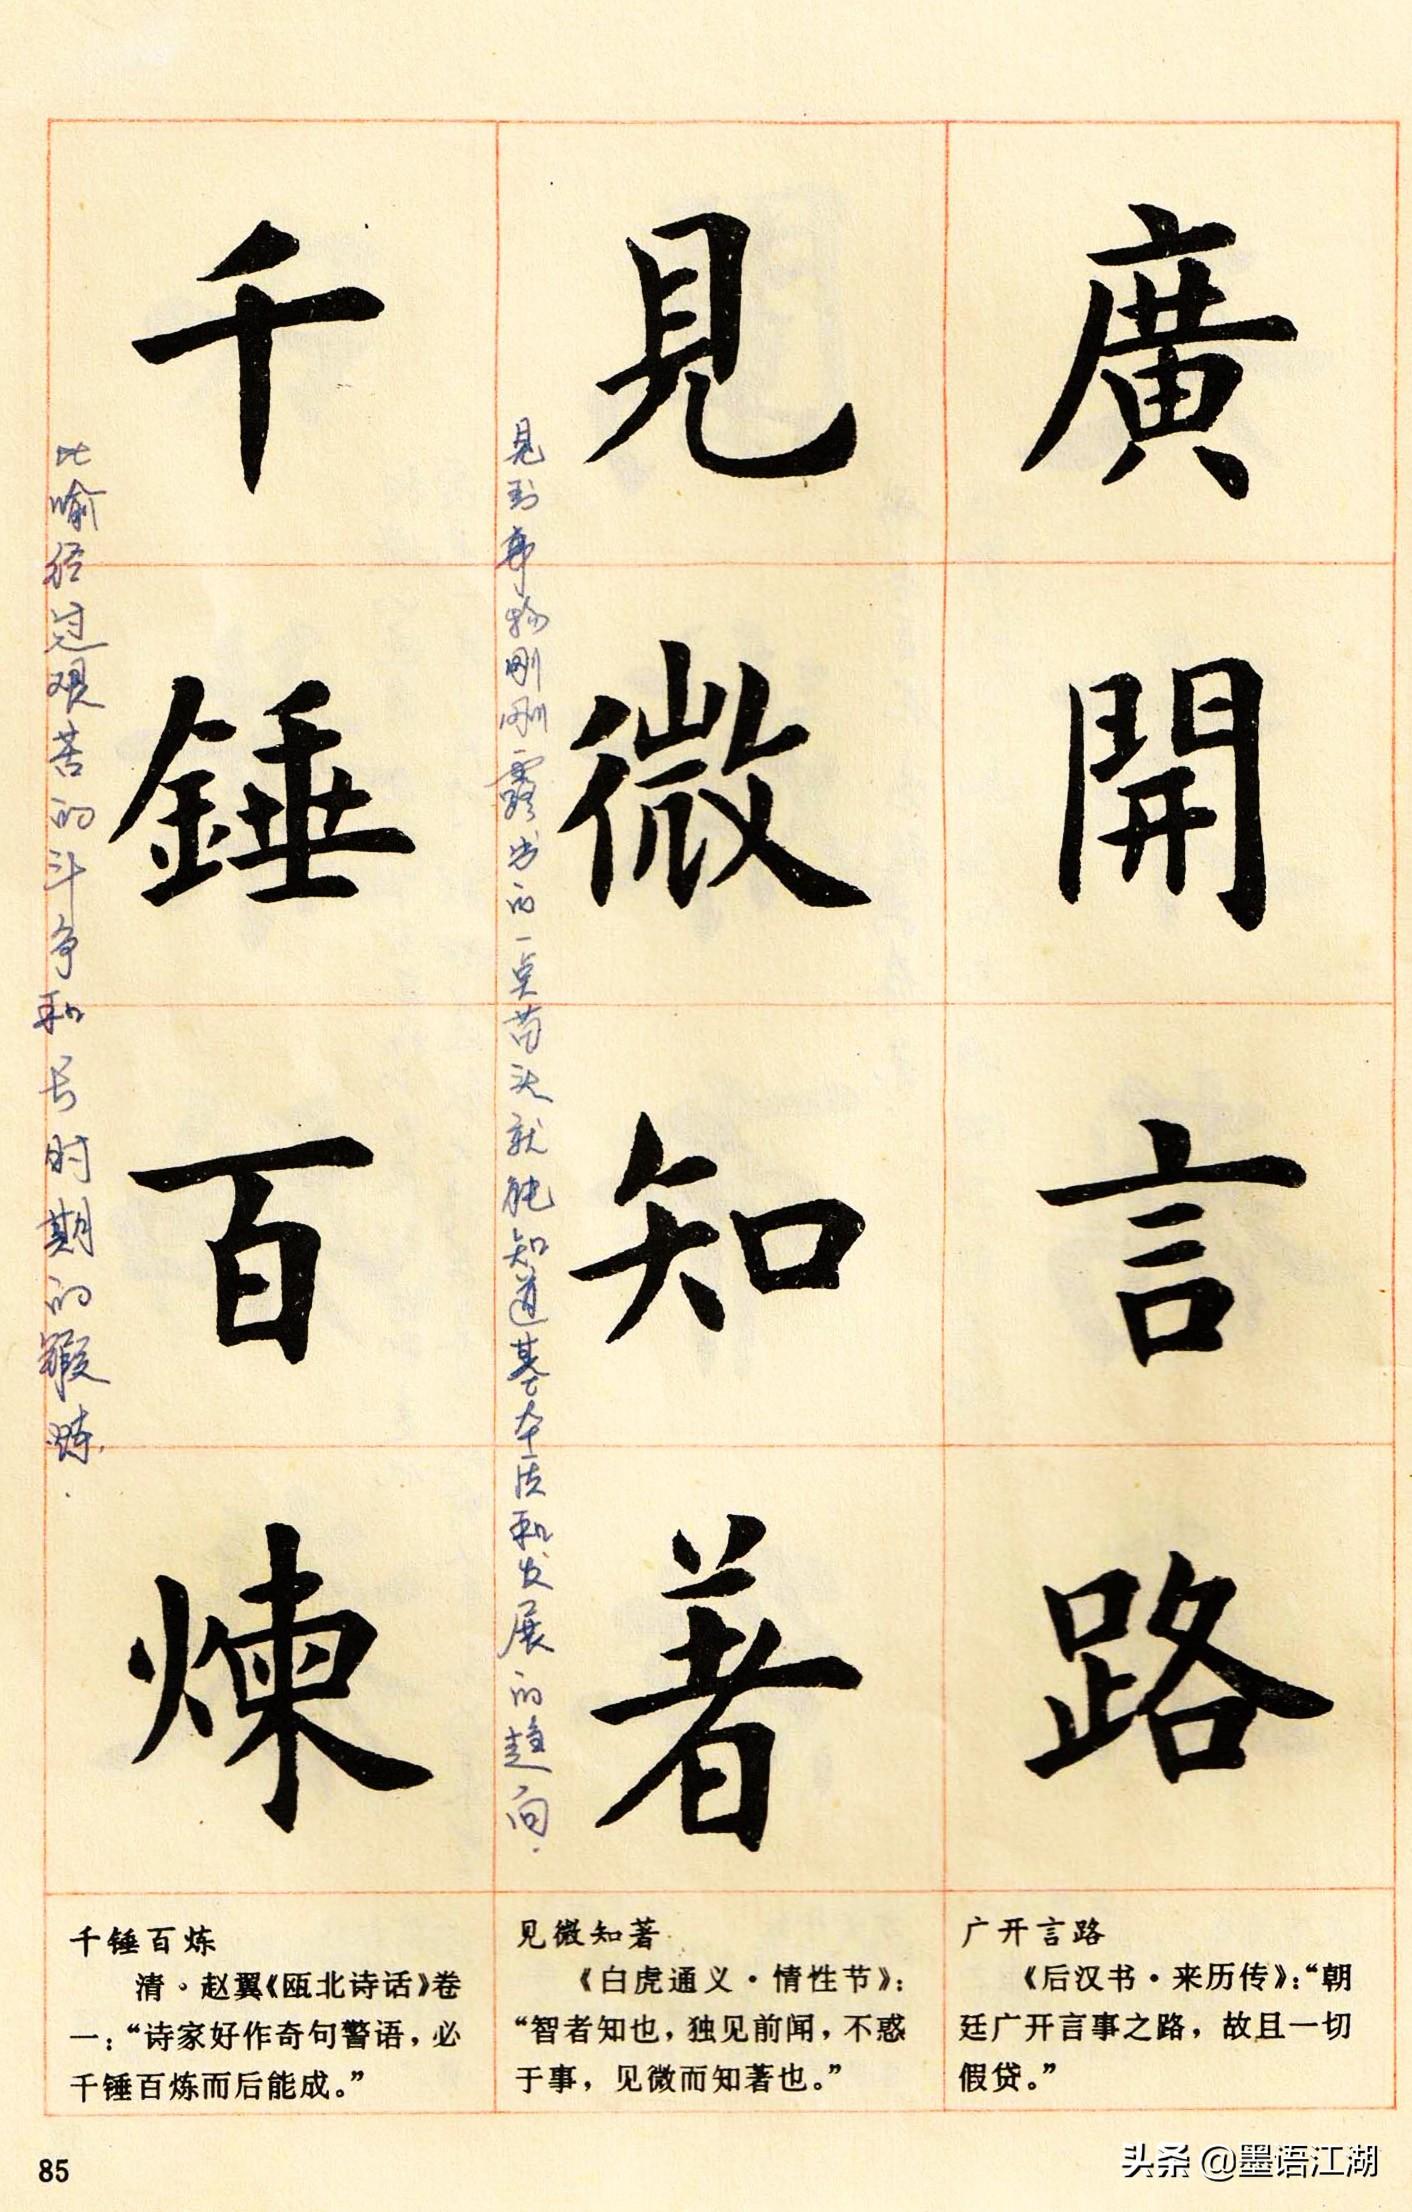 廣開言路
見微知著
见到事物刚刚露出的一点苗头就能知道其本质和发展的趋向.
千錘百煉
比喻经过艰苦的斗争和长时期的锻炼.
广开言路
《后汉书·来历传》：“朝
廷广开言事之路，故且一切
假贷。”
见微知著
《白虎通义·情性节》：
“智者知也，独见前闻，不惑
于事，见微而知著也。”
千锤百炼
清·赵翼《瓯北诗话》卷
一：“诗家好作奇句警语，必
千锤百炼而后能成。”
85
头条 @墨语江湖